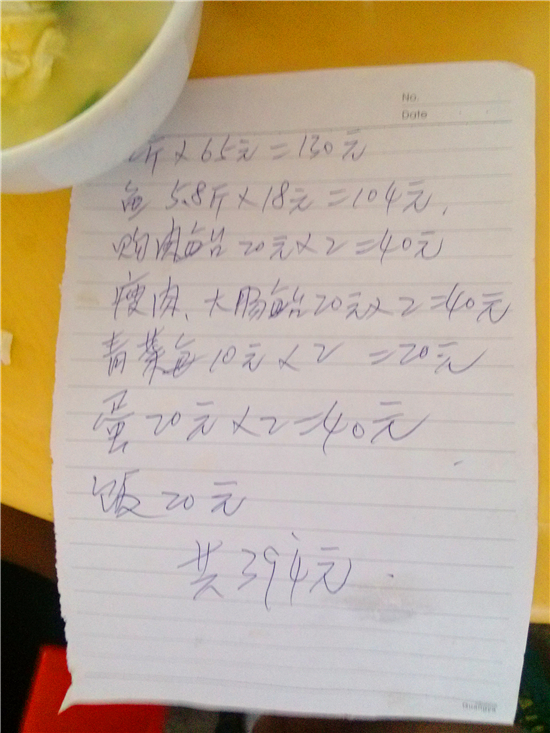 No.
Date
斤×65元=130元
鱼 5.8斤×18元=104元.
肉 20元×2=40元
瘦肉、大肠 20元×2=40元
青菜 10元×2 =20元
蛋 20元×2=40元
饭 20元
共394元.